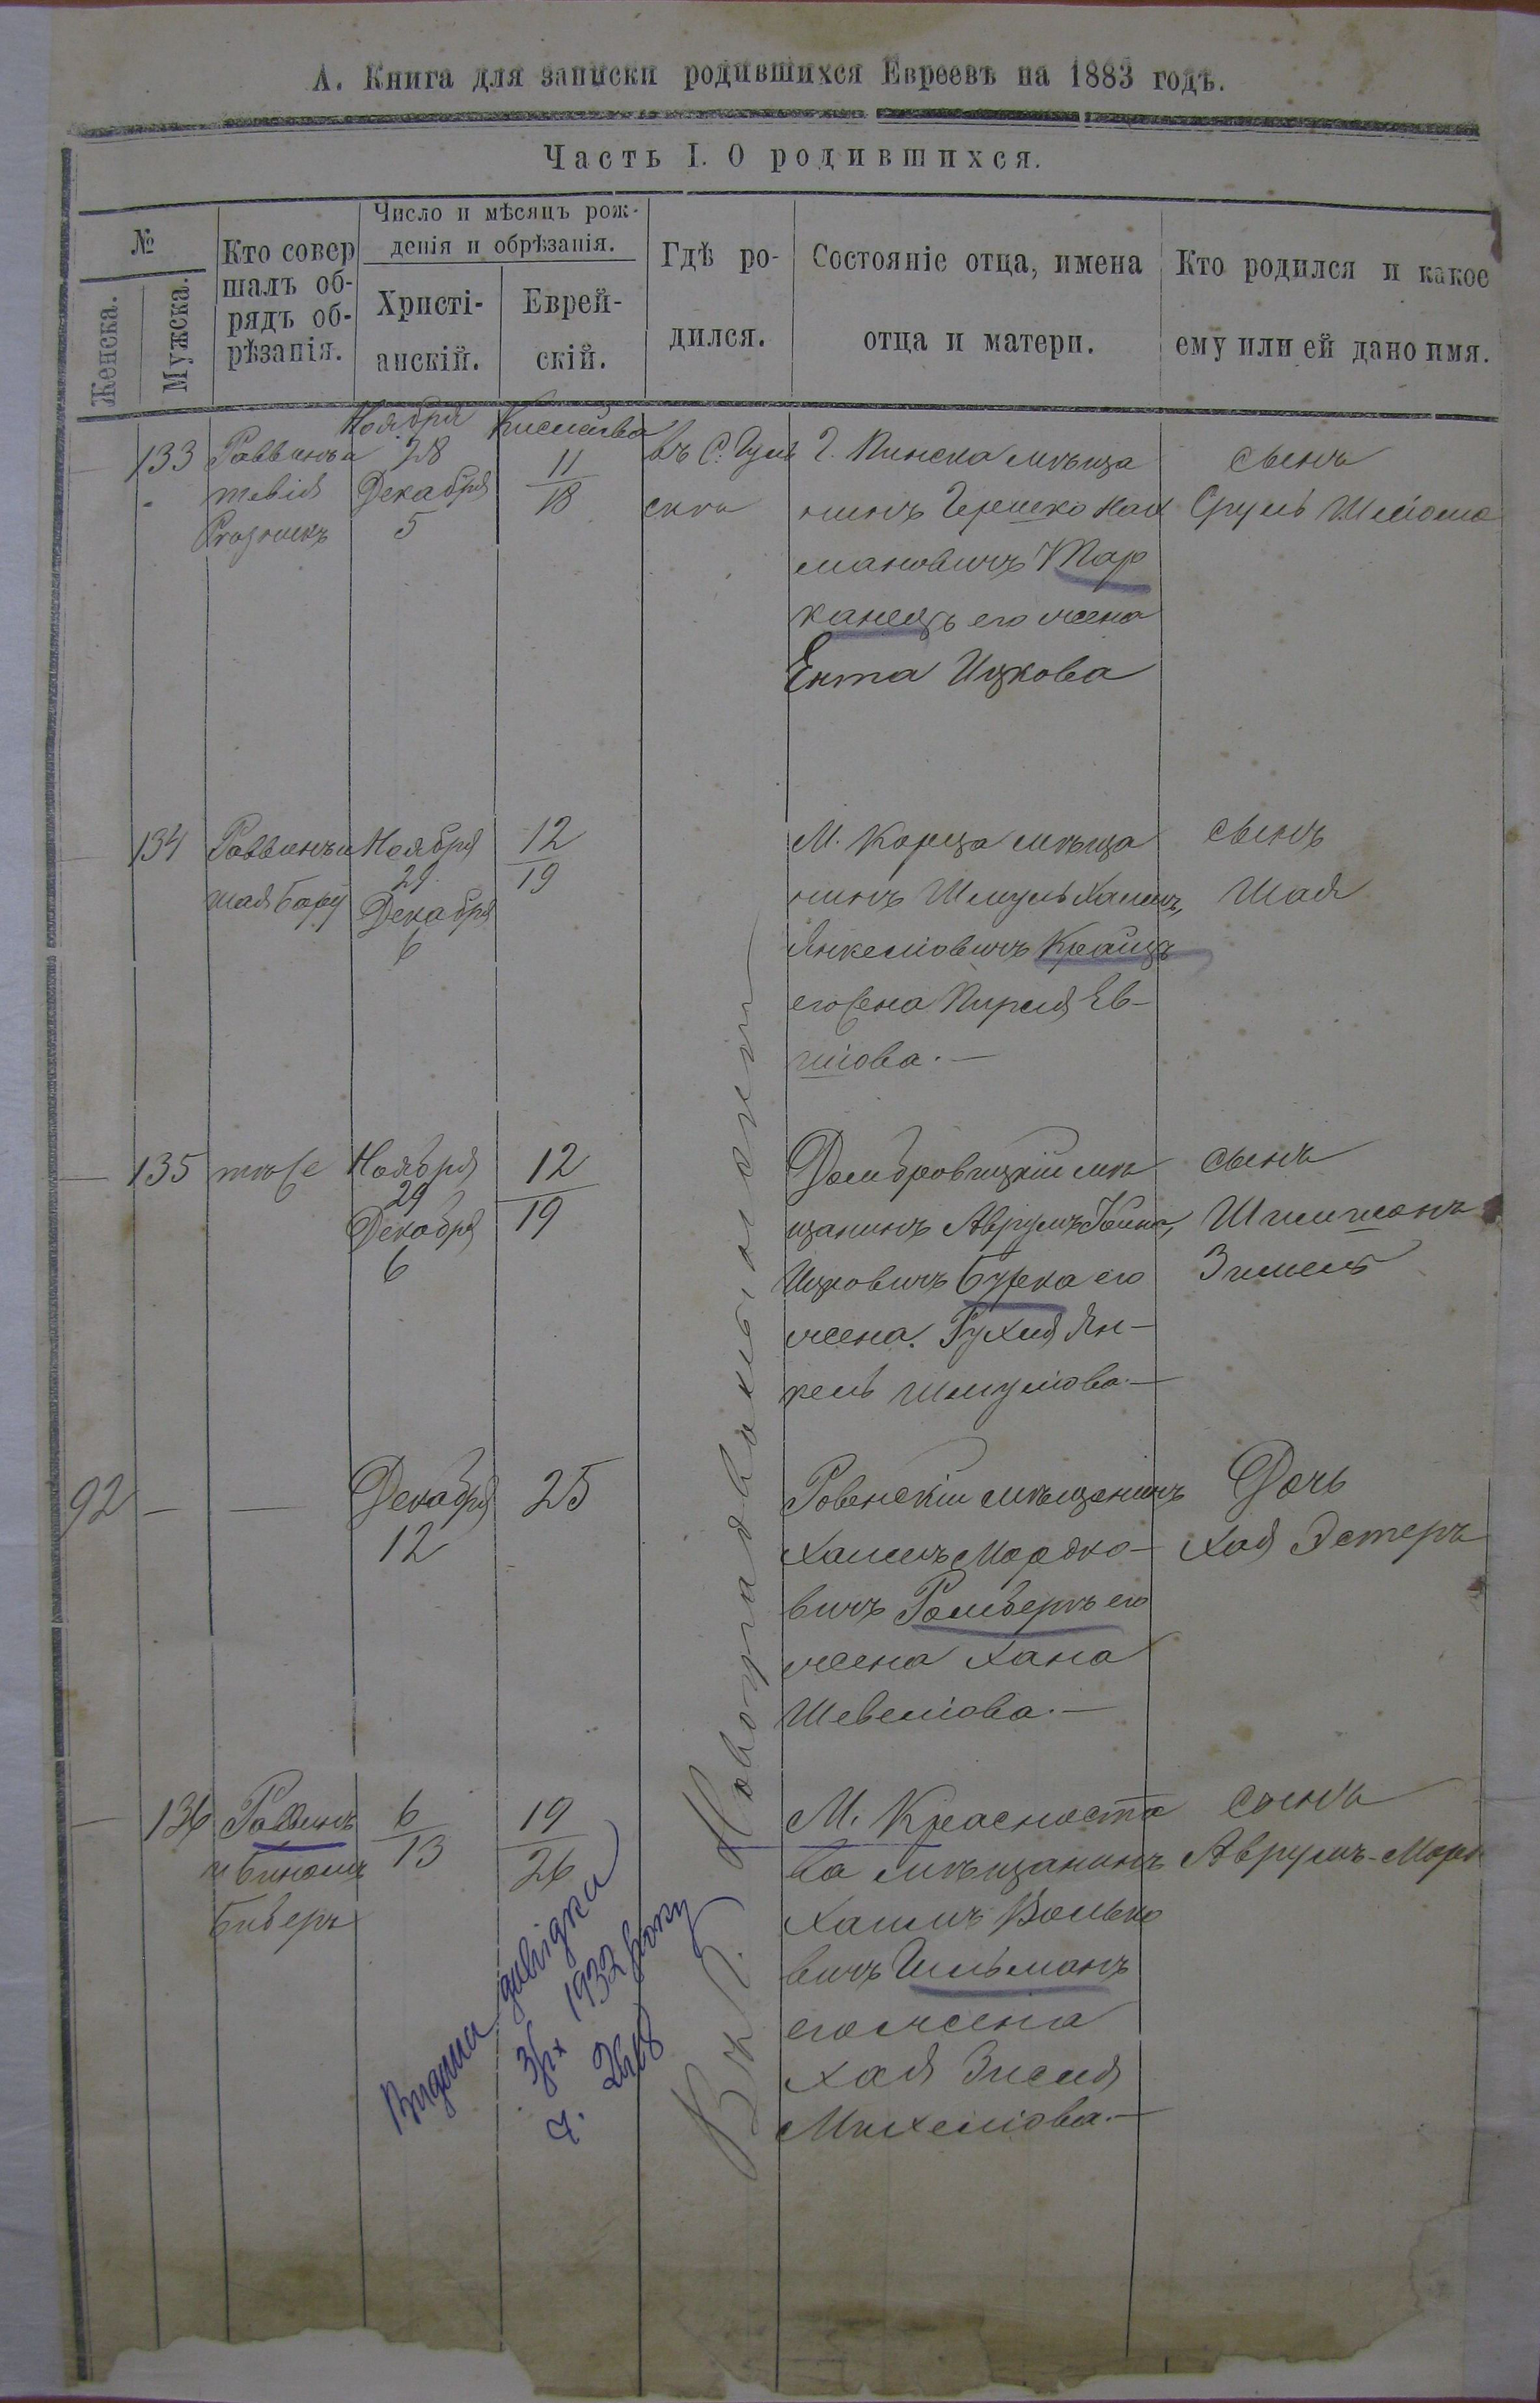 А. Книга для записки родившихся Евреевъ на 1883 годъ.
Часть I. О родившихся.
№
Женска.
Мужска.
Кто совер
шалъ об-
рядъ об-
рѣзанія.
Число и мѣсяцъ рож-
денія и обрѣзанія.
Христі-
анскій.
Еврей-
скій.
Гдѣ ро-
дился.
Состояніе отца, имена
отца и матери.
Кто родился и какое
ему или ей дано имя.
133
Раввинъ и
тевія
Ноября
28
Декабря
5
Кислейва
11
18
въ С.
Г. Пинска мѣща
нинъ Гершко Нах
мановичъ Тар
канецъ его жена
Ента Ицкова
сынъ
Сруль Шліома
134
Раввинъ и
шая
Ноября
29
Декабря
6
12
19
М. Корца мѣща
нинъ Шмуль Хаимъ
Янкеліовичъ Крайцъ
его жена Пирля Ев-
сынъ
Шая
135
тоже
Ноября
29
Декабря
6
12
19
Домбровицкій мѣ
щанинъ Аврумъ
Ицковичъ его
жена Рухля Ян-
кель Шмуліова.—
сынъ
Зимель
92
—
—
Декабря
12
25
Ровенскій мѣщанинъ
Хаимъ Мордко-
вичъ его
жена Хана
Шевеліова.—
Дочь
Хая Эстеръ
136
Раввинъ
и
Биберъ
6
13
19
26
М. Красноста
ва мѣщанинъ
Хаимъ Волько
вичъ Гильманъ
его жена
Хая Зисля
Михеліова.—
сынъ
Аврумъ-Морд
Видана довідка
3/IX 1932 року
ч. 2618
Новоградволынскомъ